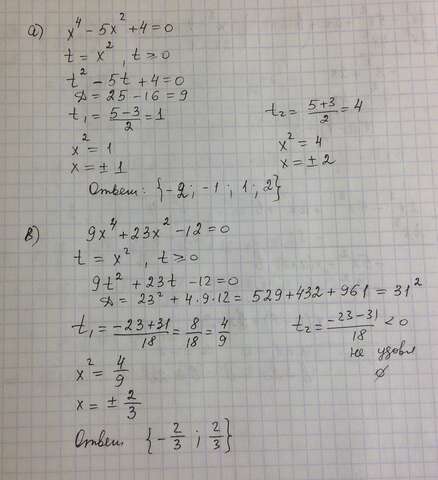 а) x⁴ - 5x² + 4 = 0
t = x², t ≥ 0
t² - 5t + 4 = 0
D = 25 - 16 = 9
t₁ = (5-3)/2 = 1    t₂ = (5+3)/2 = 4
x² = 1    x² = 4
x = ± 1    x = ± 2
Ответ: {-2; -1; 1; 2}
в) 9x⁴ + 23x² - 12 = 0
t = x², t ≥ 0
9t² + 23t - 12 = 0
D = 23² + 4·9·12 = 529 + 432 + 961 = 31²
t₁ = (-23+31)/18 = 8/18 = 4/9    t₂ = (-23-31)/18 < 0
не удовл
x² = 4/9    ∅
x = ± 2/3
Ответ: {-2/3; 2/3}